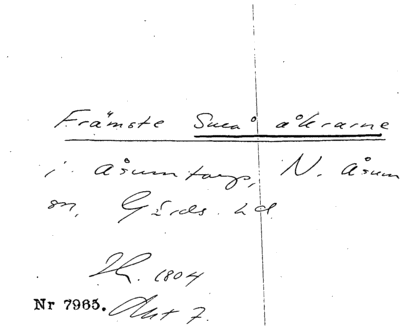 Främste Små åkrarne
i Åsumtorp, N. Åsum
sn, Gärds hd
1804
Nr 7965. Akt 7.